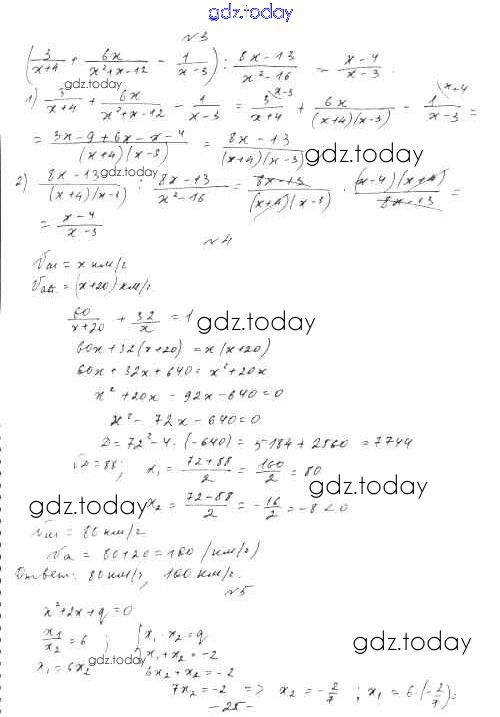 gdz.today
N3
(3/(x+4) + 6x/(x²+x-12) - 1/(x-3)) : (8x-13)/(x²-16) = (x-4)/(x-3).
gdz.today
1) 3/(x+4) + 6x/(x²+x-12) - 1/(x-3) = 3\x-3/(x+4) + 6x/((x+4)(x-3)) - 1\x+4/(x-3) =
= (3x-9+6x-x-4)/((x+4)(x-3)) = (8x-13)/((x+4)(x-3))
gdz.today
gdz.today
2) (8x-13)/((x+4)(x-3)) : (8x-13)/(x²-16) = (8x-13)/((x+4)(x-3)) · ((x-4)(x+4))/(8x-13) =
= (x-4)/(x-3)
N4
Vм = x км/г
Vавт. = (x+20) км/г.
60/(x+20) + 32/x = 1
gdz.today
60x+32(x+20) = x(x+20)
60x+32x+640 = x²+20x
x²+20x-92x-640=0
x²-72x-640=0
D=72²-4·(-640) = 5184+2560 = 7744
√D=88; x₁ = (72+88)/2 = 160/2 = 80
gdz.today
gdz.today
x₂ = (72-88)/2 = -16/2 = -8<0
Vм = 80 км/г
Vа = 80+20=100 (км/г)
Ответ: 80 км/г, 100 км/г.
N5
x²+2x+q=0
x₁/x₂ = 6 ; { x₁·x₂ = q
gdz.today
x₁ = 6x₂ x₁+x₂ = -2
gdz.today
6x₂+x₂ = -2
7x₂ = -2 => x₂ = -2/7 ; x₁ = 6·(-2/7) =
- 25 -